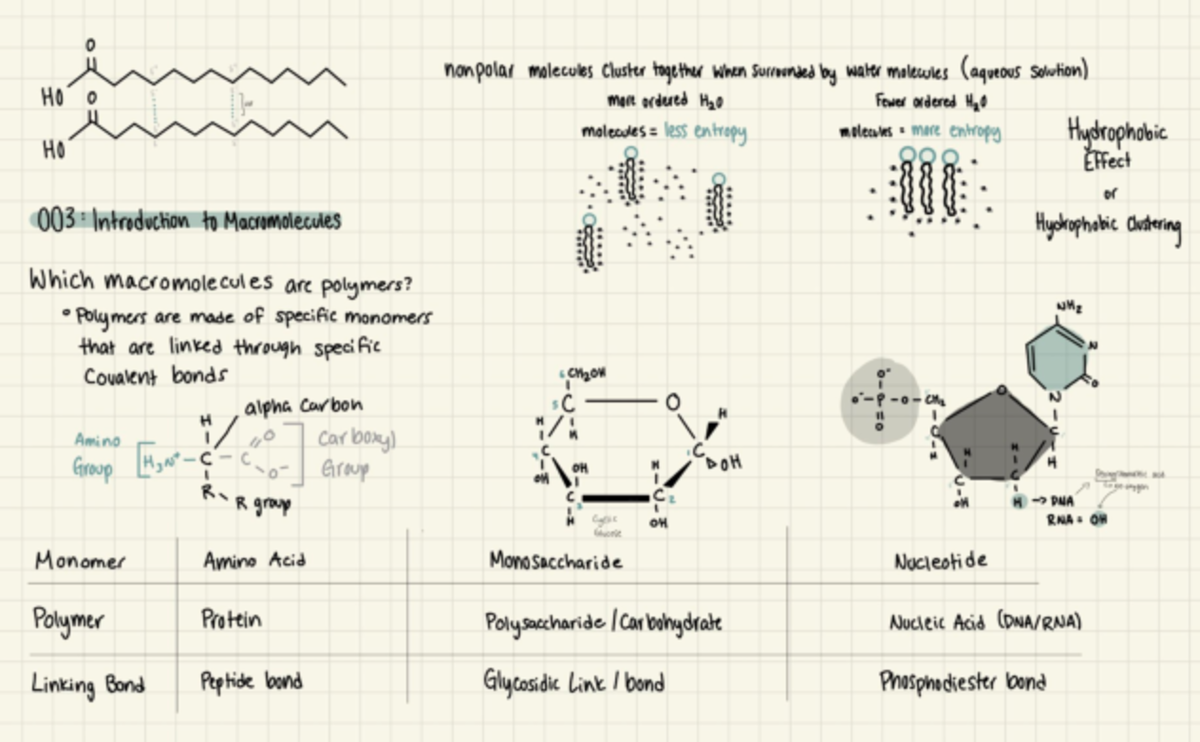 O
HO
O
HO
nonpolar molecules cluster together when surrounded by water molecules (aqueous solution)
more ordered H₂O
molecules = less entropy
Fewer ordered H₂O
molecules = more entropy
Hydrophobic
Effect
or
Hydrophobic Clustering
003: Introduction to Macromolecules
Which macromolecules are polymers?
• Polymers are made of specific monomers
that are linked through specific
Covalent bonds
alpha carbon
Amino
Group
H
H₃N⁺ – C – C
O
O⁻
Carboxyl
Group
R
R group
6 CH₂OH
5 C
O
H
H
H
4 C
C 1
OH
OH
OH
H
3 C
C 2
H
OH
Cyclic
Glucose
NH₂
N
O
N
O⁻
O⁻ – P – O – CH₂
O
O
C
C
H
H
H
H
C
C
OH
H → DNA
RNA = OH
Monomer
Amino Acid
Monosaccharide
Nucleotide
Polymer
Protein
Polysaccharide / Carbohydrate
Nucleic Acid (DNA/RNA)
Linking Bond
Peptide bond
Glycosidic Link / bond
Phosphodiester bond